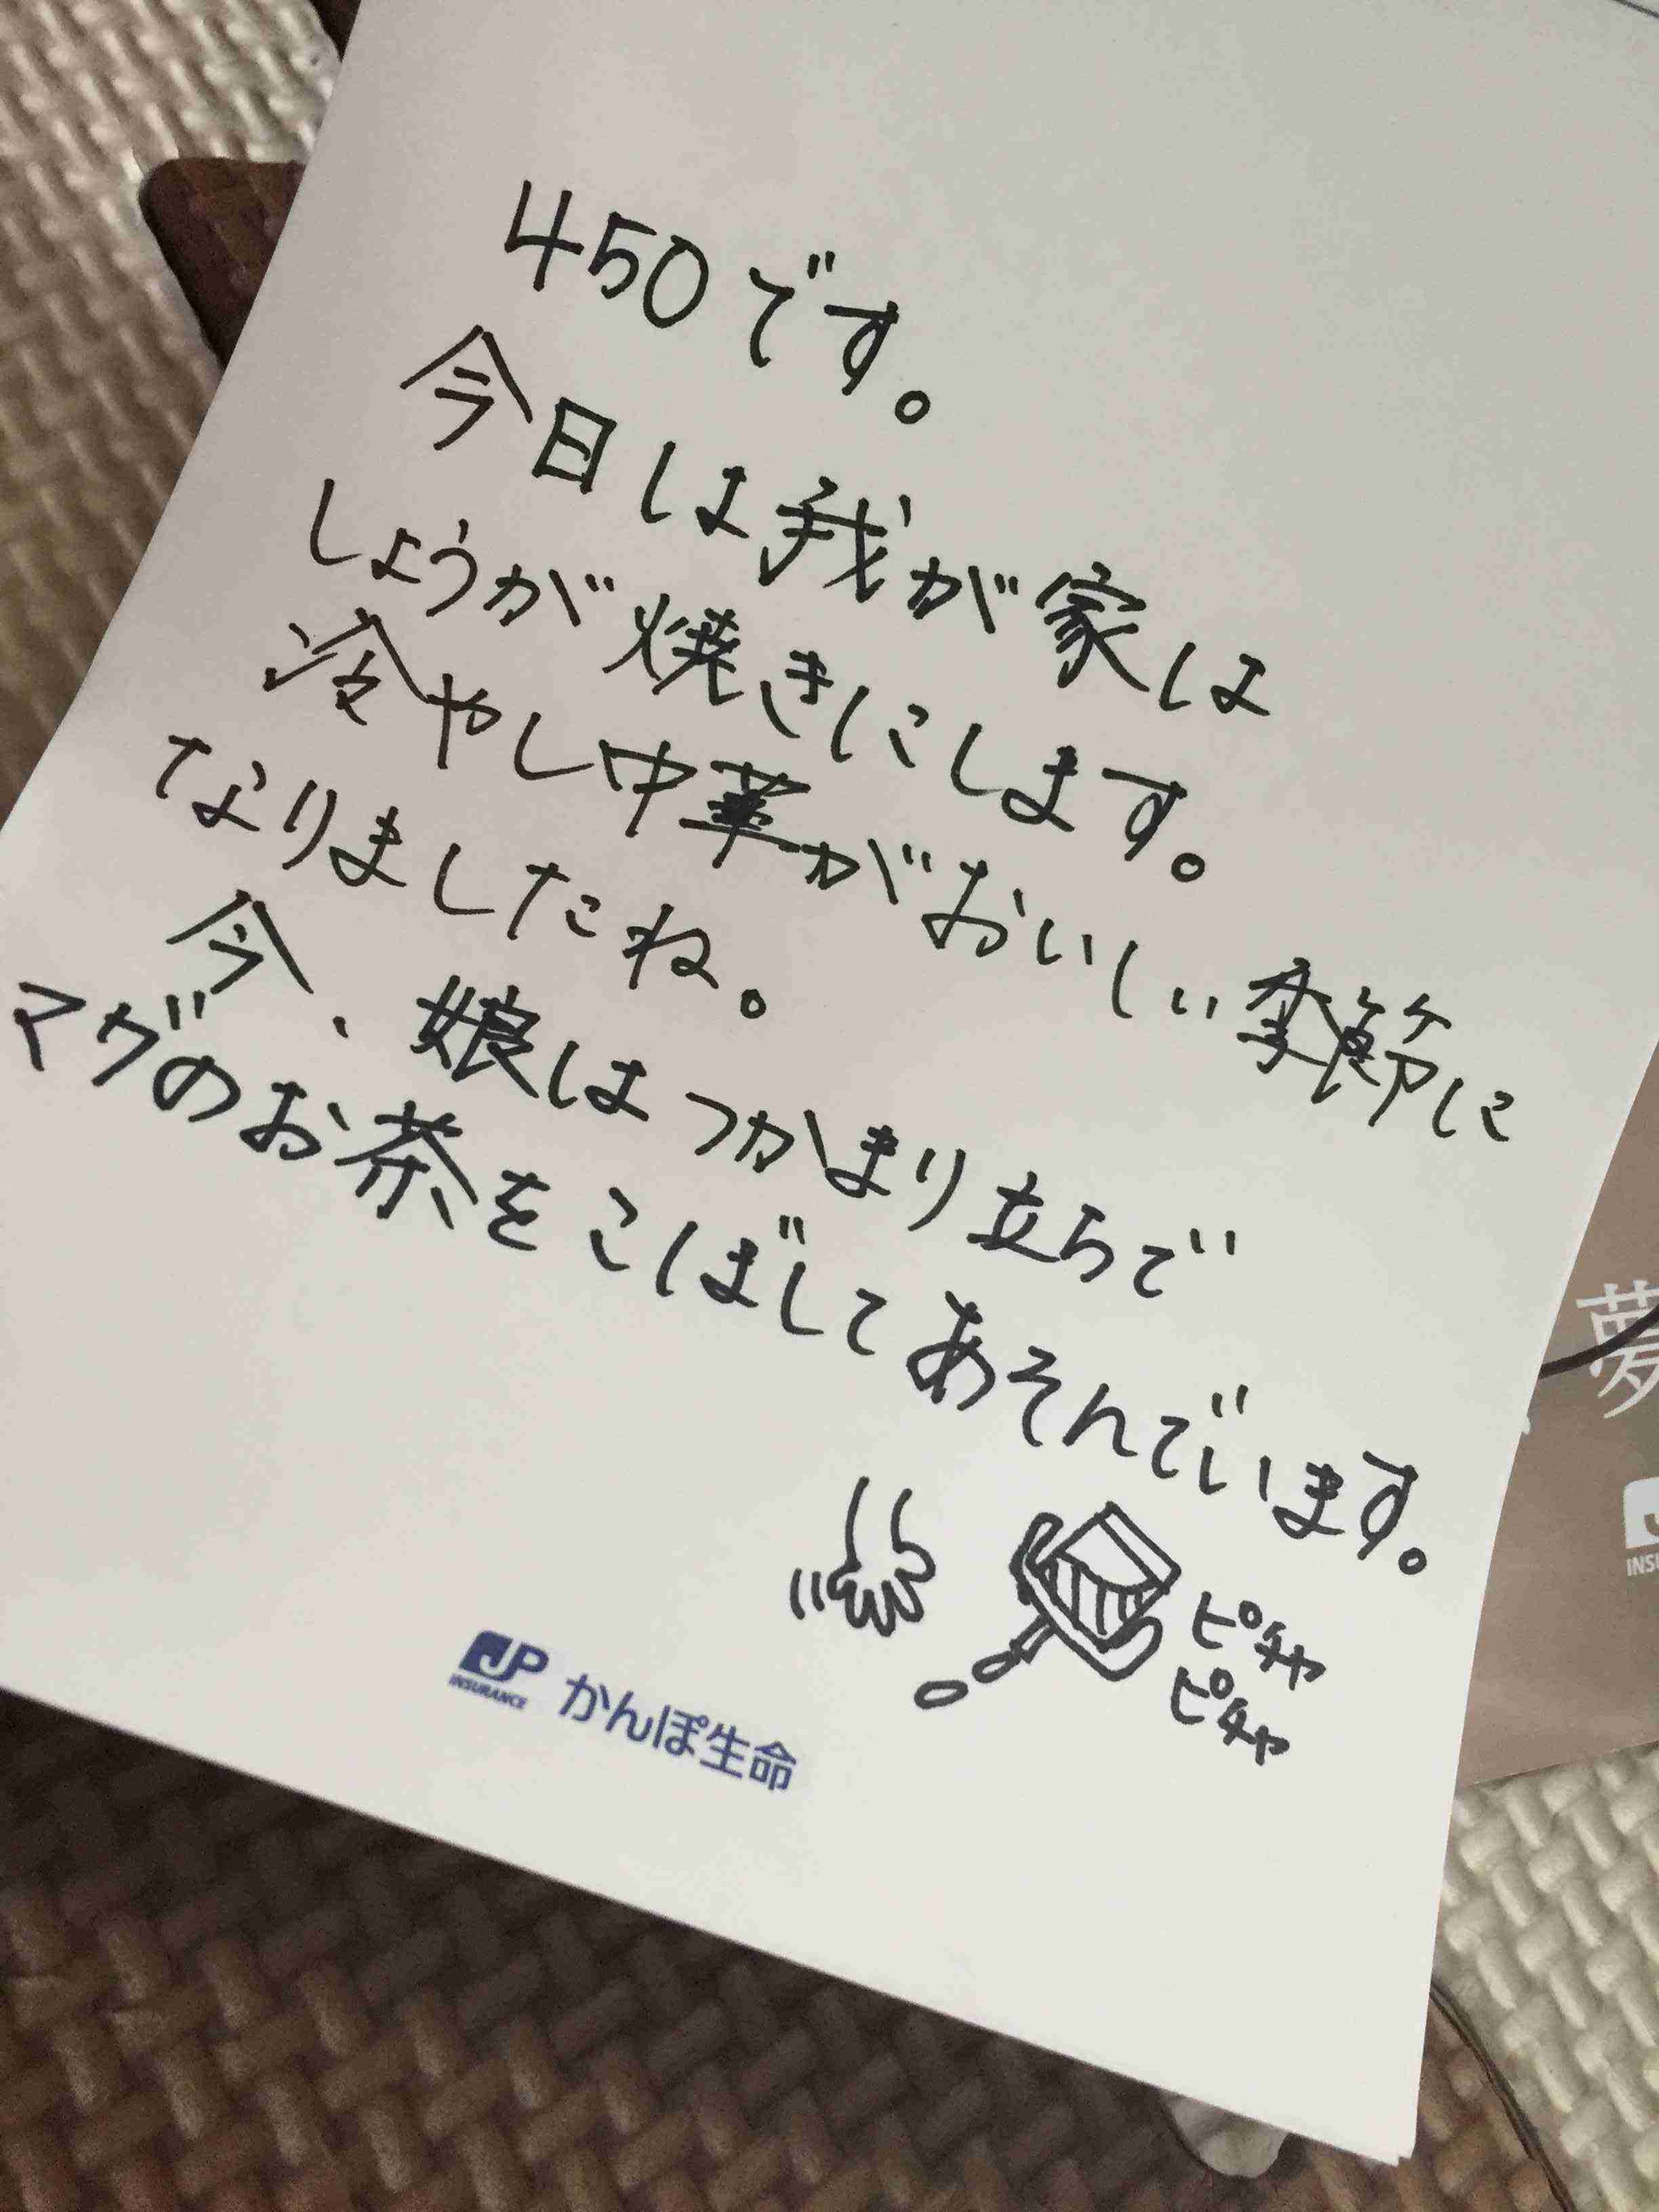 450です。
今日は我が家は
しょうが焼きにします。
冷やし中華がおいしい季節に
なりましたね。
今、娘はつかまり立ちで
マグのお茶をこぼしてあそんでいます。
ピチャ
ピチャ
JP INSURANCE かんぽ生命
夢